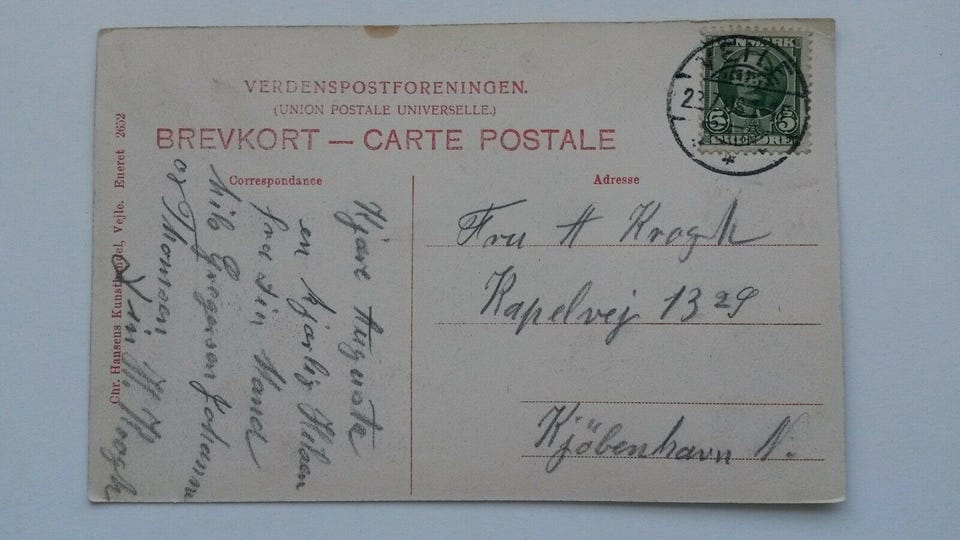 VERDENSPOSTFORENINGEN.
(UNION POSTALE UNIVERSELLE.)
BREVKORT — CARTE POSTALE
Correspondance
Adresse
Chr. Hansens Kunsthandel, Vejle. Eneret 2652
VEJLE
DANMARK
5 5
Kjære Auguste
en kjærlig Hilsen
fra din Mand
hils Gregersen Johanne
og Thomsen
Din H. Krogh
Fru A Krogh
Kapelvej 13
Kjöbenhavn N.